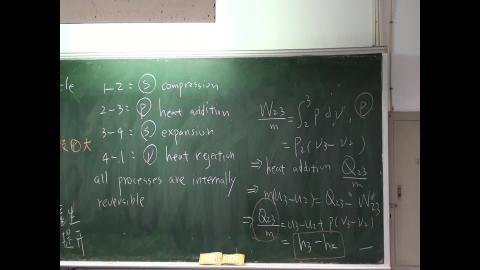 cle
1-2 = Ⓢ compression
2-3 = Ⓟ heat addition
3-4 = Ⓢ expansion
4-1 = Ⓥ heat rejection
all processes are internally
reversible
大
W23/m = ∫₂³ P dV Ⓟ
= P2 (V3 - V2)
⇒ heat addition Q23/m
⇒ m(u3-u2) = Q23 - W23
⇒ Q23/m = u3-u2 + P(V3-V2)
= h3-h2